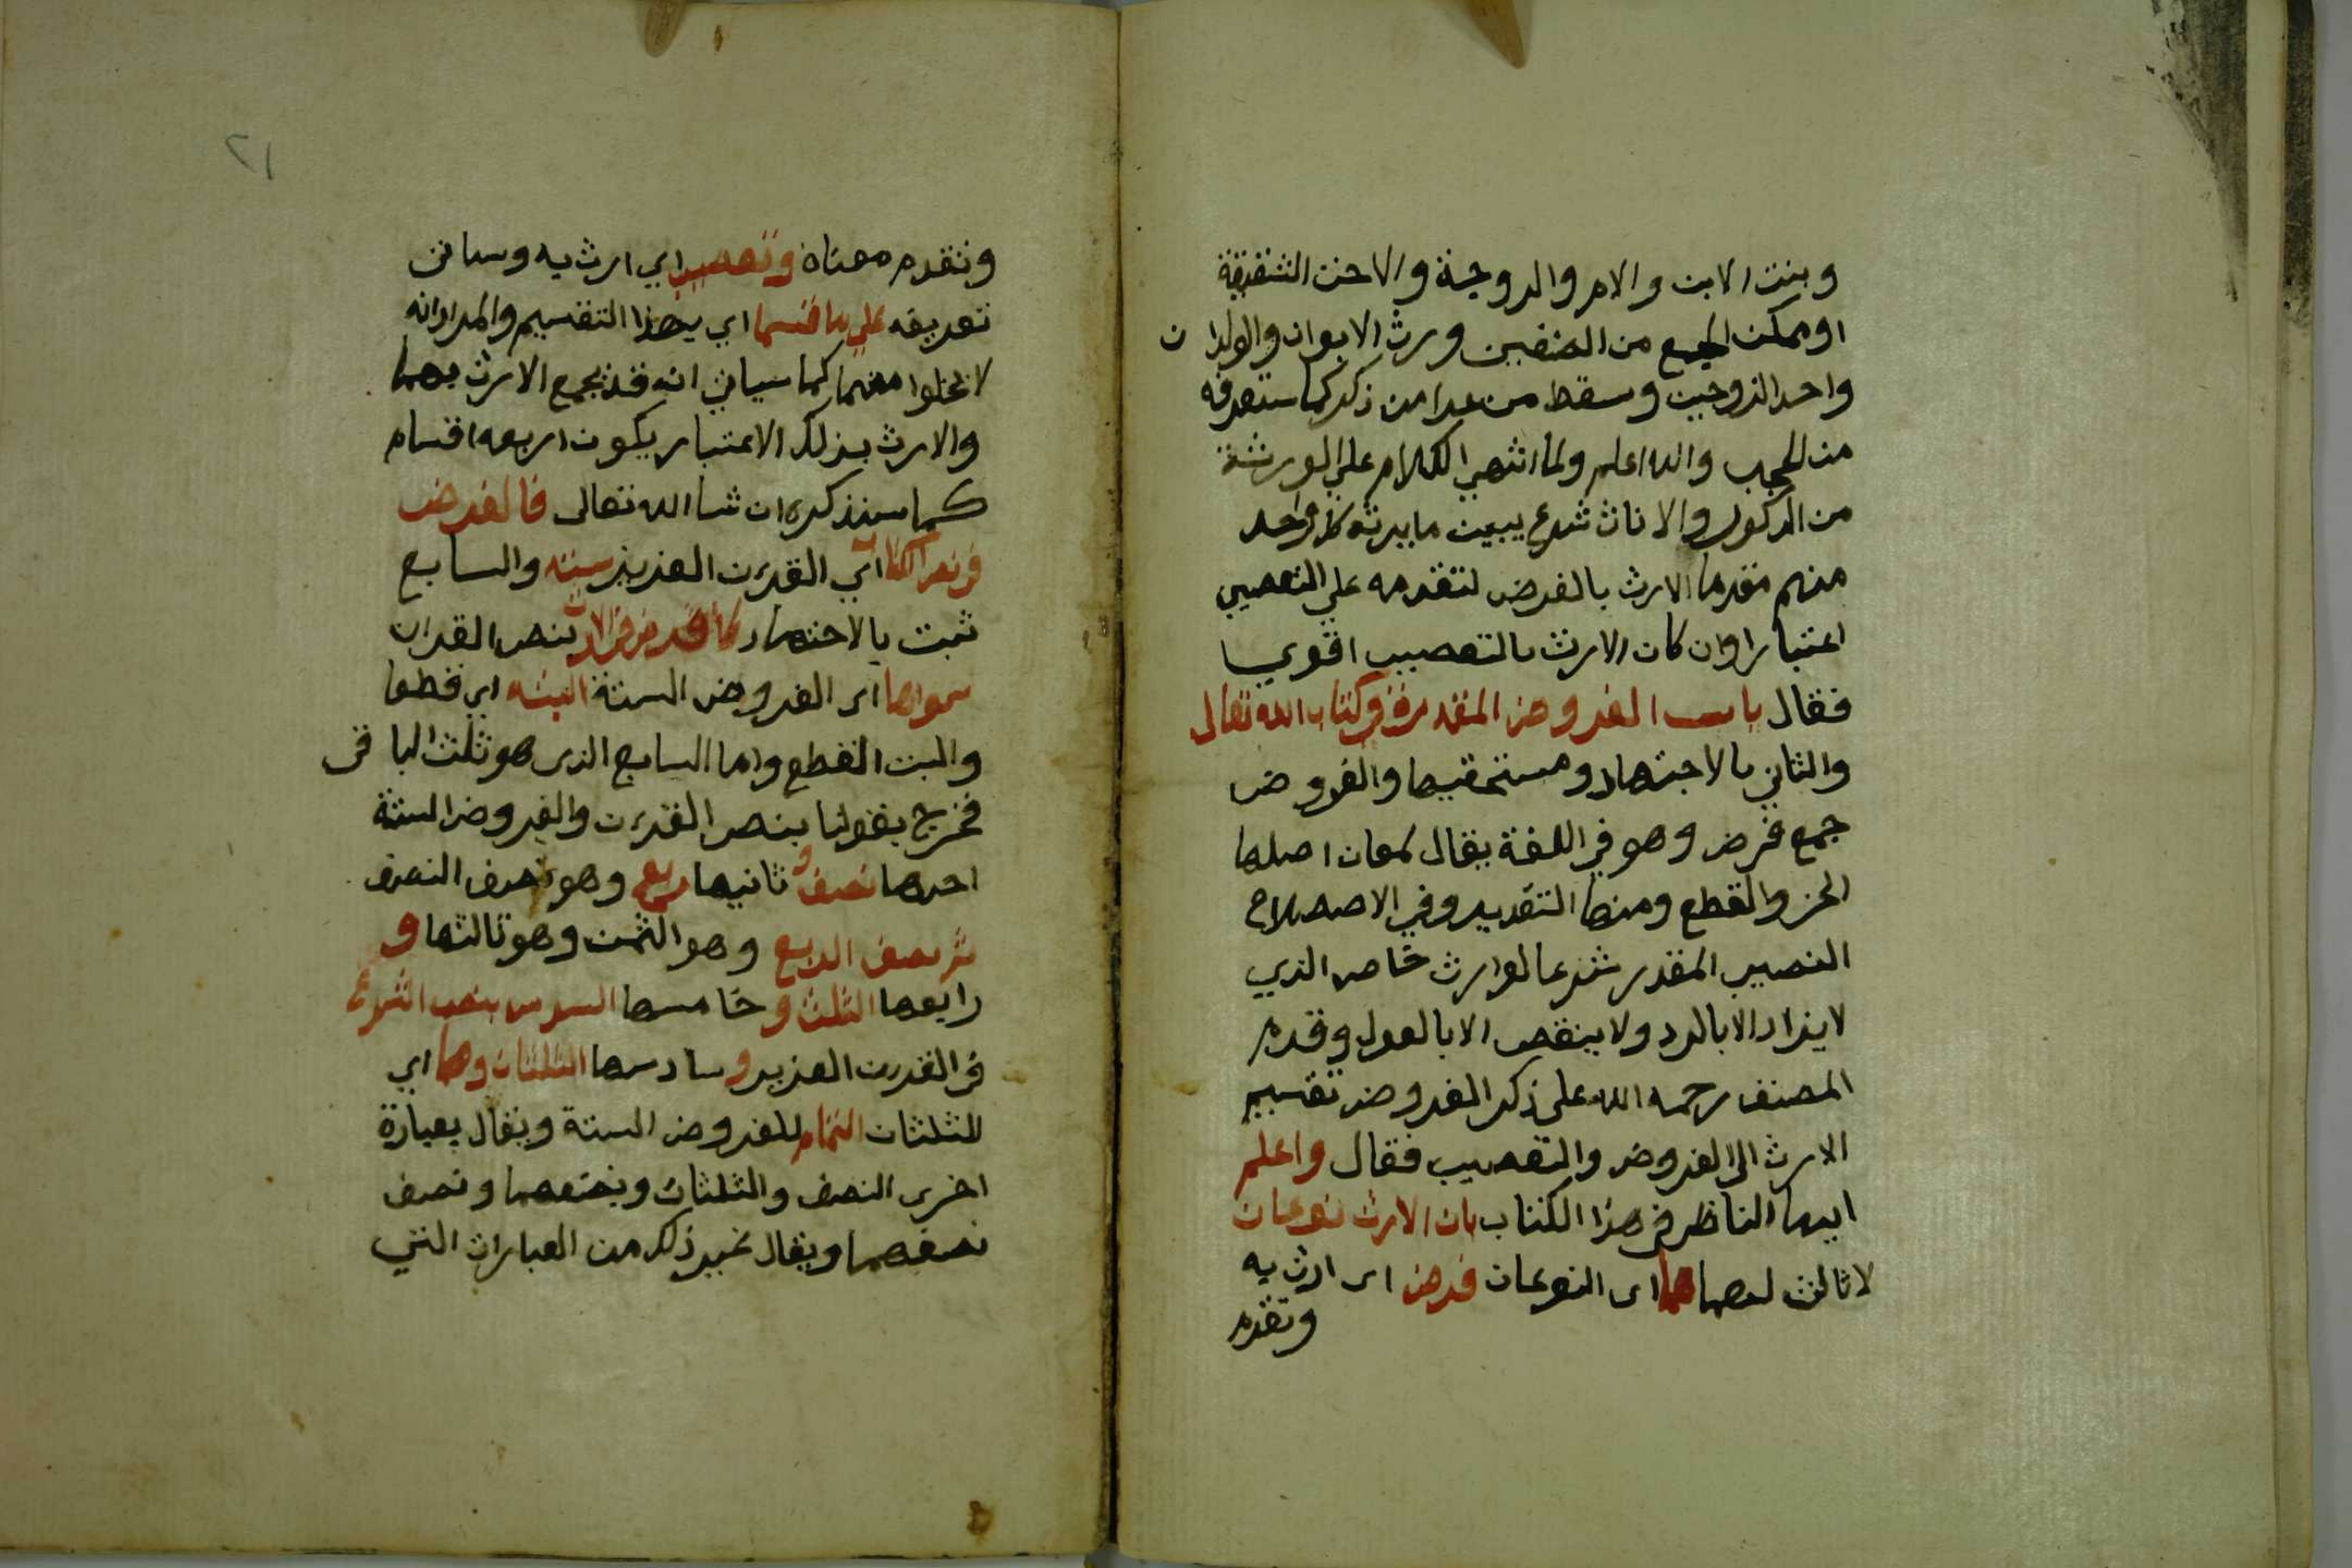 وبنت الابن والام والزوجة والاخت الشقيقة
او ممكن الجمع من الصنفين ورث الابوان والولدان
واحد الزوجين وسقط من عدا من ذكر كما ستعرفه
من الحجب والله اعلم ولما انتهي الكلام علي الورثة
من الذكور والاناث شرع يبين ما يرثه كل واحد
منهم مقدما الارث بالفرض لتقدمه علي التعصيب
اعتبارا وان كان الارث بالتعصيب اقوي
فقال باب الفروض المقدرة في كتاب الله تعالى
والثاني بالاجتهاد ومستحقيها والفروض
جمع فرض وهو في اللغة يقال لمعان اصلها
الحز والقطع ومنها التقدير وفي الاصطلاح
النصيب المقدر شرعا لوارث خاص الذي
لا يزاد الا بالرد ولا ينقص الا بالعول وقدم
المصنف رحمه الله على ذكر الفروض تقسيم
الارث الى الفروض والتعصيب فقال واعلم
ايها الناظر في هذا الكتاب بان الارث نوعان
لا ثالث لهما هما اى النوعان فرض اى ارث به
وتقدم
٢١
وتقدم معناه وتعصيب اي ارث به وسياتى
تعريفه علي ما قسما اي بهذا التقسيم والمراد انه
لا يخلوا منهما كما سياتي انه قد يجمع الارث بهما
والارث بذلك الاعتبار يكون اربعه اقسام
كما سنذكره ان شا الله تعالى فالفرض
في نص الكتاب اي القرءن العزيز سته والسابع
ثبت بالاجتهاد لا فرض في الارث بنص القران
سواها اى الفروض الستة البته اي قطعا
والبت القطع واما السابع الذى هو ثلث الباقى
فخرج بقولنا بنص القرءن والفروض الستة
احدها نصف و ثانيها ربع وهو نصف النصف
ثم نصف الربع وهو الثمن وهو ثالثها و
رابعها الثلث و خامسها السدس بنص الشرع
فى القرءن العزيز و سادسها الثلثان وهما اي
الثلثان التمام للفروض الستة ويقال بعبارة
اخرى النصف والثلثان ونصفهما ونصف
نصفهما ويقال غير ذلك من العبارات التي